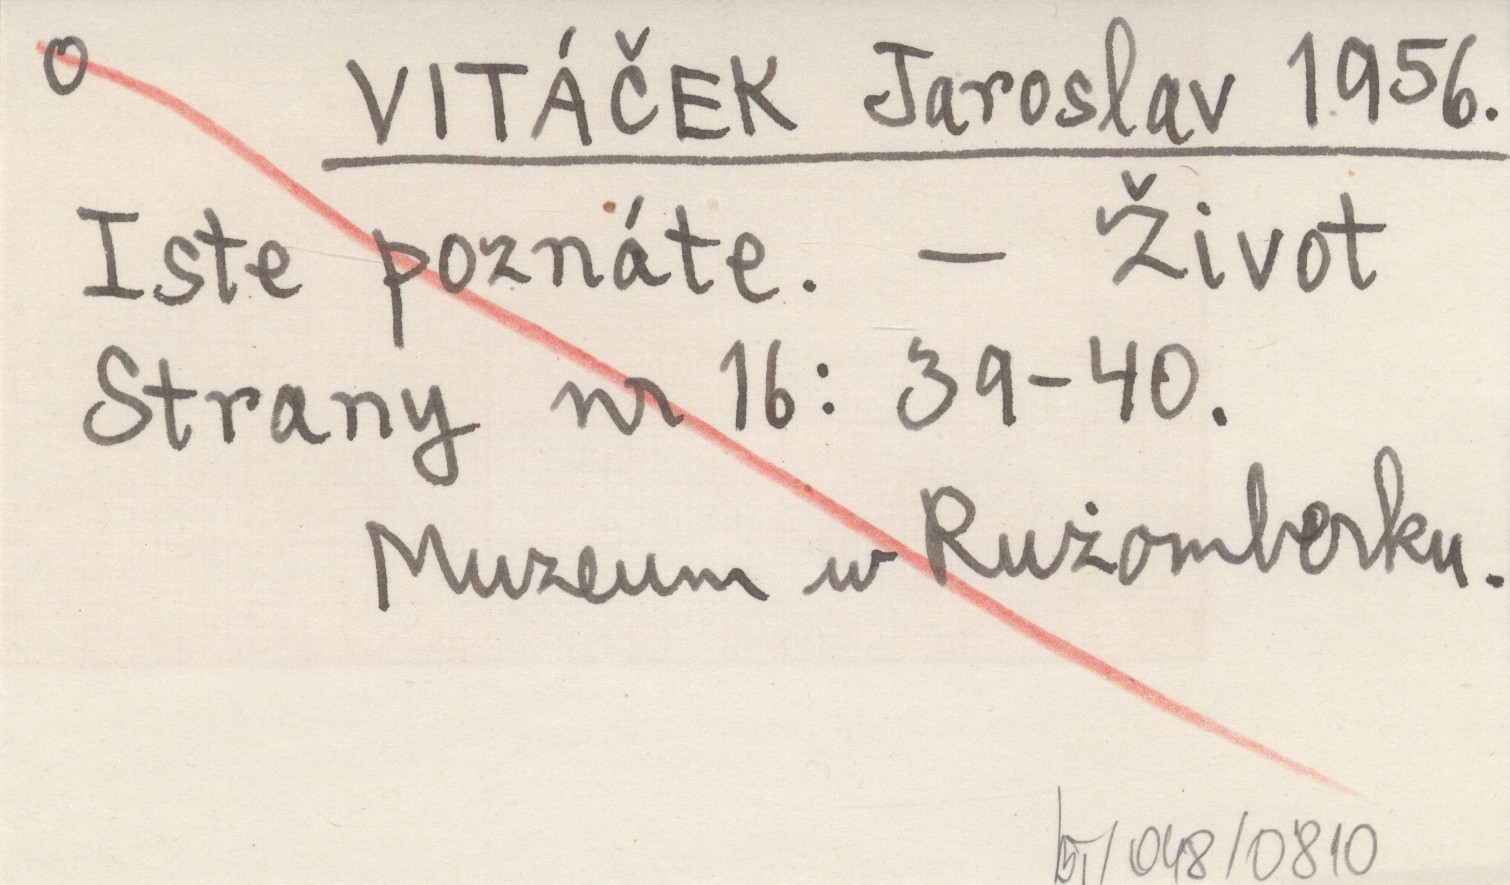 O VITÁČEK Jaroslav 1956.
Iste poznáte. — Život
Strany nr 16: 39-40.
Muzeum w Rużomberku.
b5/048/0810